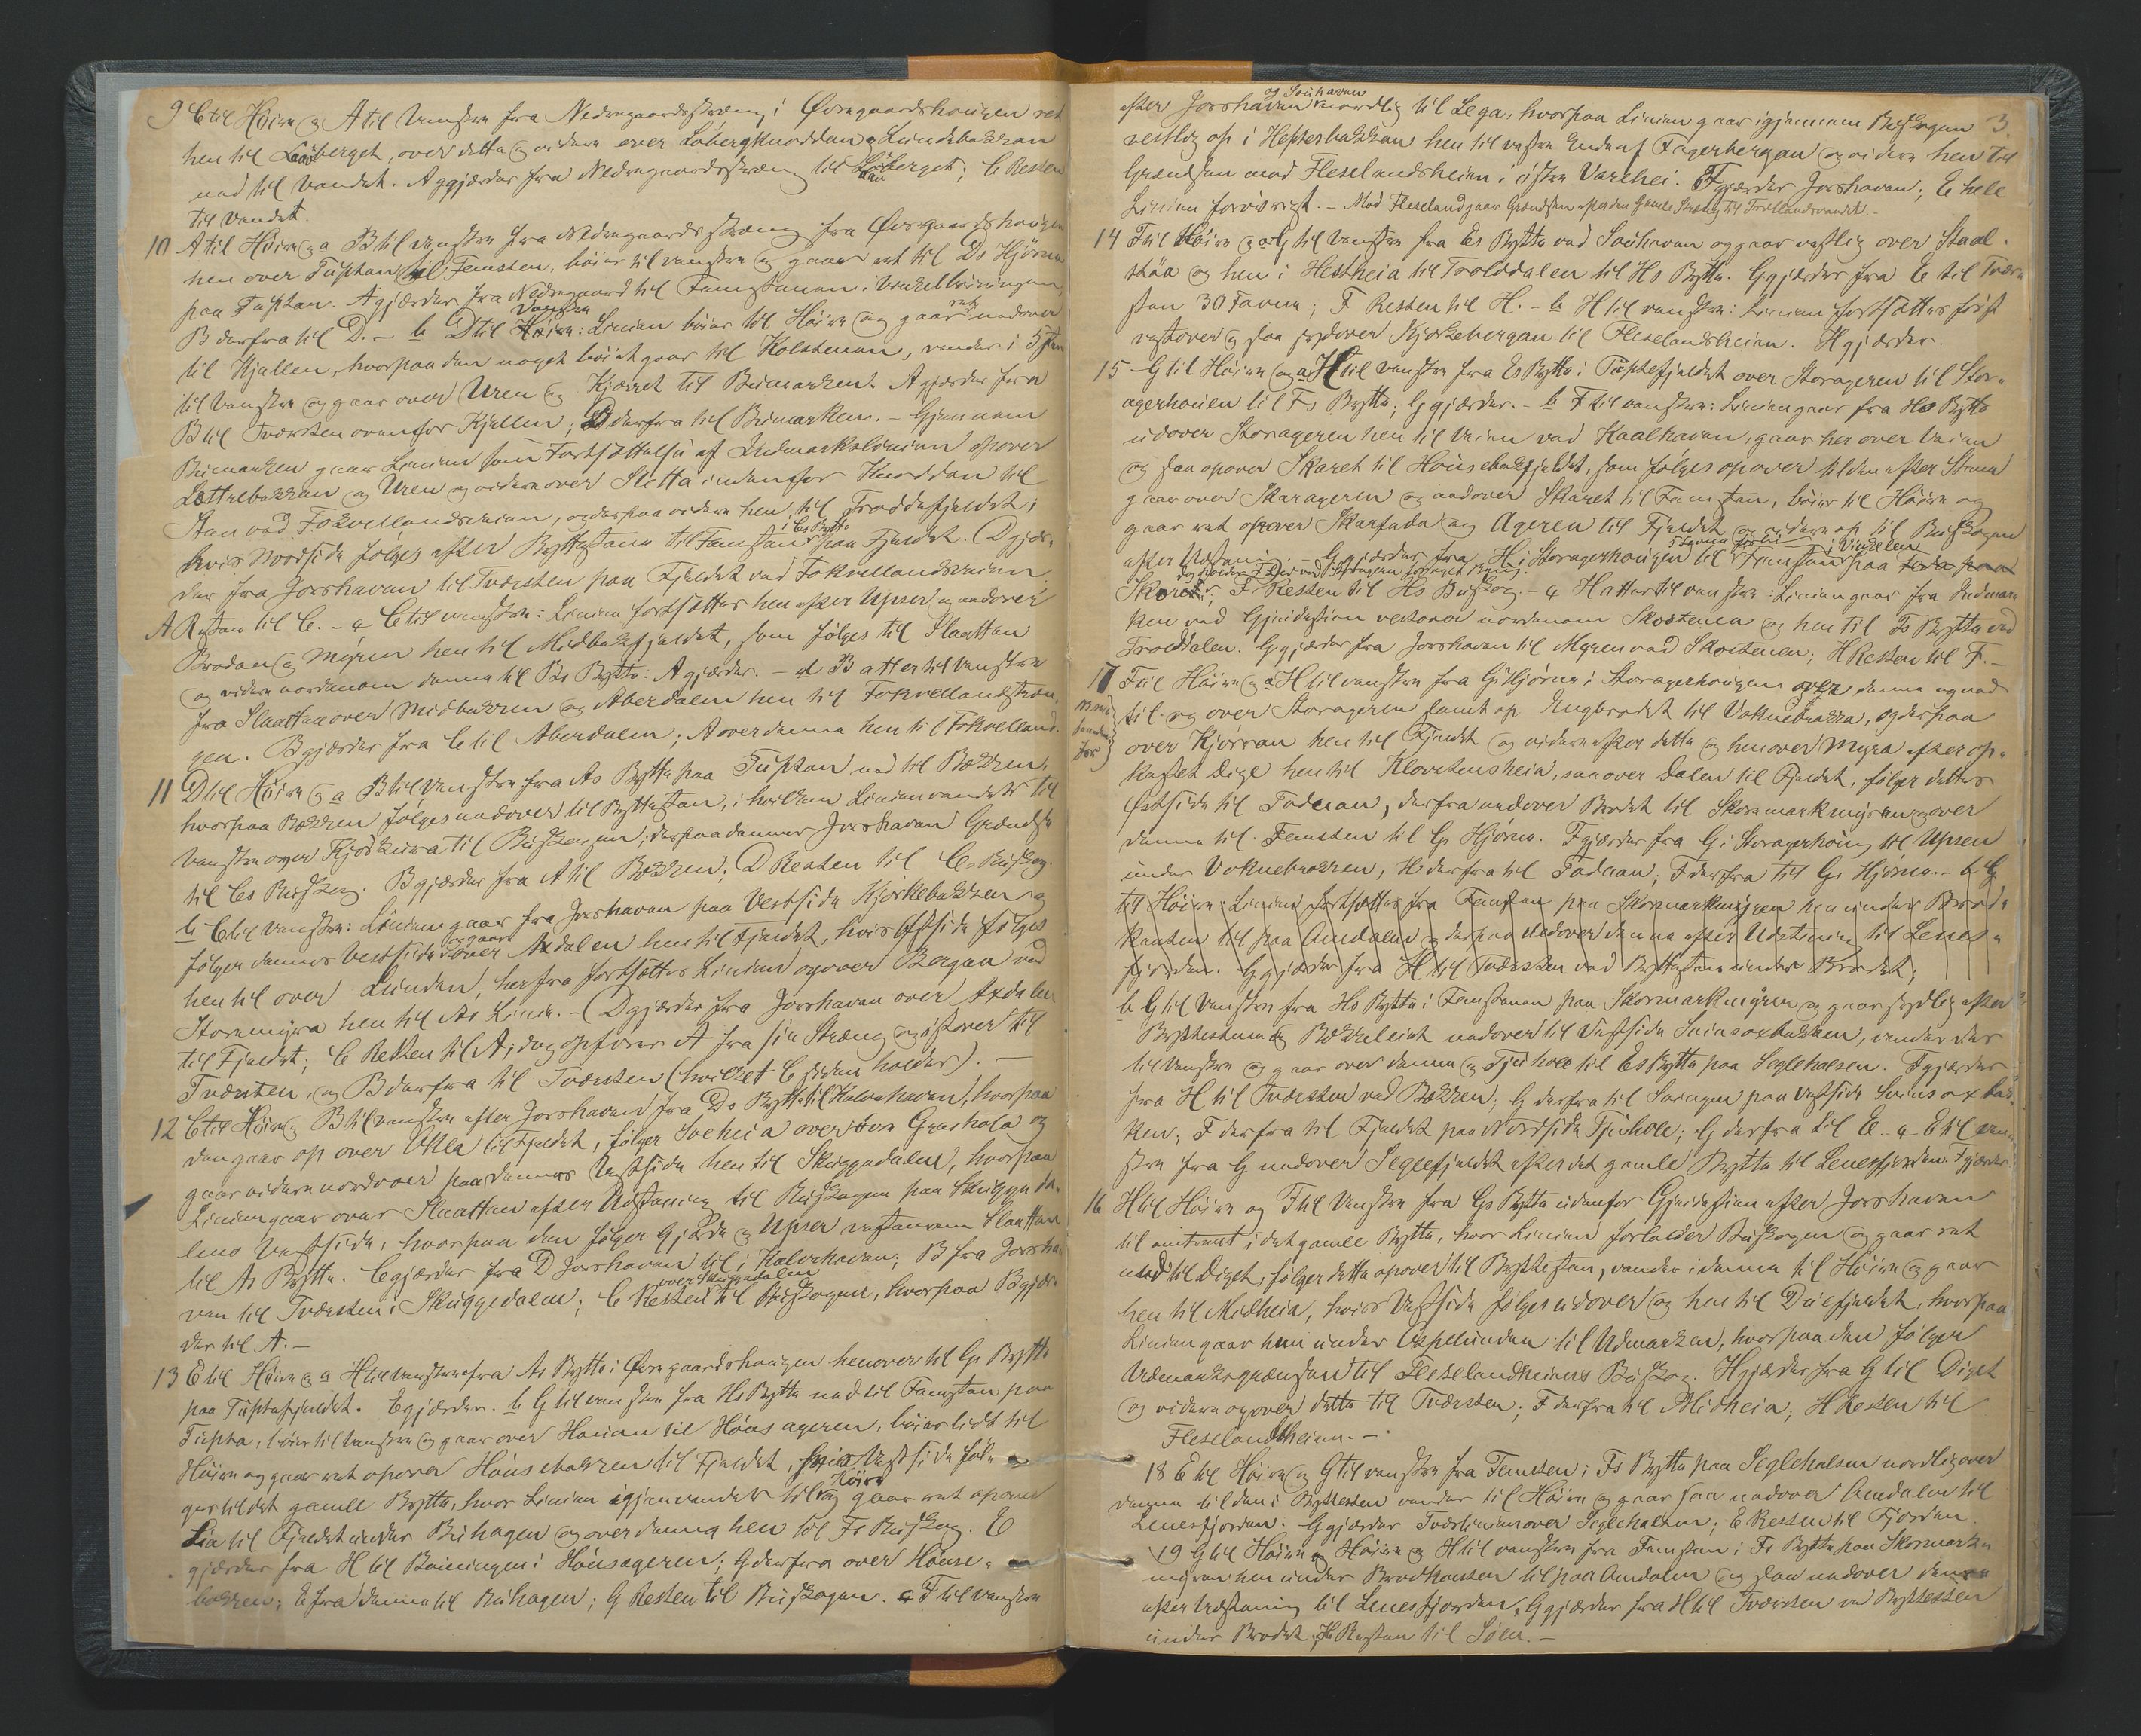 9 C til Höire og A til Venstre fra Nedregaardsstræng i Øvregaardshougen ret
hen til Laaberget, over dette og videre over Löbergknodden og Lundebakken
ned til Vandet. A gjærder fra Nedregaardsstræng til Löberget; C Resten
til Vandet.
10 A til Höire og a B til Venstre fra Nedregaardsstræng fra Øvregaardshougen
hen over Tuftan til Femsten, böier til venstre og gaar ret til Ds Hjörne
paa Tuftan. A gjærder fra Nedregaard til Femstenen i Vinkelböiningen,
B derfra til D. – b D til Venstre: Linien böier til Höire og gaar ret nedover
til Kjellen, hvorpaa den noget böiet gaar til Kolstenen, vender i 5sten
til Venstre og gaar over Uren og Kjærret til Bumarken. A gjærder fra
B til Tværsten ovenfor Kjellen; D derfra til Bumarken. – Gjennem
Bumarken gaar Linien som Fortsættelse af Indmarkslinien opover
Lættelbakken og Uren og videre over Sletta indenfor Knodden til
Sten ved Fokvellandsveien, og derpaa videre hen til Troddefjeldet;
hvis Nordside følges efter Byttestene til Femsten i Cs Bytte paa Fjeldet. (D gjær-
der fra Jorshaven til Tværsten paa Fjeldet ved Fokvellandsveien
A Resten til C. – c C til venstre: Linien fortsættes hen efter Upser og nedover
Braden og Myren hen til Midbakfjeldet, som følges til Slaatten
og videre nordenom denne til Bs Bytte. A gjærder. – d B atter til Venstre
fra Slaatten over Midbakken og Aberdalen hen til Fokvellandstræn-
gen. B gjærder fra C til Aberdalen; A over denne hen til Fokvelland.
11 D til Höire og a B til Venstre fra As Bytte paa Tuftan ned til Bækken,
hvorpaa Bækken følges nedover til Byttesten, i hvilken Linien vender til
Venstre over Kjödkura til Buskogen; derpaa danner Jorshaven Grændse
til Cs Buskog. B gjærder fra A til Bækken; D Resten til Cs Buskog.
b C til Venstre: Linien gaar fra Jorshaven paa Vestside Kjerkebakken og
følger dennes Vestside og gaar over Axdalen hen til Fjeldet, hvis Østside følges
hen til over Lunden; herfra fortsættes Linien opover Bergan ved
Stormyra hen til As Linie. – (D gjærder fra Jorshaven over Axdalen
til Fjeldet; C Resten til A; dog opfører A fra sin Stræng og østover til
Tværsten, og B derfra til Tværsten (hvilket C siden holder). –
12 C til Höire og B til venstre efter Jorshaven fra Ds Bytte til Kalvehaven, hvorpaa
den gaar op over Uhla til Fjeldet, følger Soeheia over Grashola og
gaar videre nordover paa dennes Vestside hen til Skuggedalen, hvorpaa
Linien gaar over Slaatten efter Udstening til Buskogen paa Skuggeda-
lens Vestside, hvorpaa den følger Gjærde og Upser vestenom Slaatten
til As Bytte. C gjærder fra D Jorshaven til i Kalvehaven; B fra Jorsha-
ven til Tværsten i Skuggedalen; C Resten over Skuggedalen til Buskogen, hvorpaa B gjær-
der til A. –
13 E til Höire og a H til Venstre fra As Bytte i Øvregaardshougen henover til Gs Bytte
paa Tuftefjeldet. E gjærder. b G til venstre fra Hs Bytte ned til Femsten paa
Tufta, böier til Venstre og gaar over Houen til Höusageren, böier lidt til
Höire og gaar ret opover Höusebakken til Fjeldet, hvis Vestside føl-
ges til det gamle Bytte, hvor Linien igjen vender til Höire og gaar ret opover
Lia til Fjeldet under Buhagen og over denne hen til Fs Buskog. E
gjærder fra H til Böiningen i Höusageren; G derfra over Höuse-
bakken; E fra denne til Buhagen; G Resten til Buskogen. c F til venstre
3.
efter Jorshaven og Souhaven nordlig til Lega, hvorpaa Linien gaar igjennem Buskogen
vestlig op i Hesterbakken hen til vestre Ende af Fagerbergan og videre hen til
Grændsen mod Fleselandsheien i östre Varehei. F gjærder Jorshaven; E hele
Linien forövrigt. – Mod Fleseland gaar Grændsen efter den gamle Stræng til Troldlandsvandet. –
14 F til Höire og a G til Venstre fra Es Bytte ved Souhaven og gaar vestlig over Staal-
stöa og hen i Hestheia til Trolddalen til Hs Bytte. G gjærder fra E til Tvær-
sten 30 Favne; F Resten til H. – b H til venstre: Linien fortsættes først
vestover og saa sydover Kjerkebergan til Fleselandsheien. H gjærder.
15 G til Höire og a H til Venstre fra Es Bytte i Tuftefjeldet over Storageren til Stor-
agerhouen til Fs Bytte; G gjærder. – b F til venstre: Linien gaar fra Hs Bytte
udover Storageren hen til Veien ved Kaalhaven, gaar her over Veien
og saa opover Skaret til Höusebakfjeldet, som følges opover til den efter Stene
gaar over Skarageren og nedover Skaret til Femsten, böier til Höire og
gaar ret opover Skarfuda og Ageren til Fjeldet og videre op til Buskogen
efter Udstening. – G gjærder fra H i Storagerhougen til 5 Favne forbi Femsten i Vinkelen paa
Skaret; F Resten til Hs Buskog. – c H atter til venstre: Linien gaar fra Indmar-
ken ved Gjeidestien vestover nordenom Skostenen og hen til Fs Bytte ved
Trolddalen. G gjærder fra Jorshaven til Myren ved Skostenen; H Resten til F. –
17 F til Höire og a H til venstre fra Gs Hjörne i Storagerhougen over denne og ned
til og over Storageren samt op Engbrodet til Voknebrækka, og derpaa
over Kjörran hen til Fjeldet og videre efter dette og henover Myra efter op-
kastet Dige hen til Klovstensheia, saa over Dalen til Fjeldet, følger dettes
Østside til Fodnan, derfra nedover Brodet til Skoremarkmyren og over
denne til Femsten til Gs Hjörne. F gjærder fra G i Storagerhoug til Upsen
under Voknebrækken, H derfra til Fodnan; F derfra til Gs Hjörne. – b G
til Höire: Linien fortsættes fra Femsten paa Skormarkmyren hen under Brod-
kanten til paa Amdalen og derpaa nedover denne efter Udstening til Lenes-
fjorden. G gjærder fra H til Tværsten ved Byttesten under Brodet;
b G til Venstre fra Hs Bytte i Femstenen paa Skormarkmyren og gaar sydlig efter
Byttestene og Bækkeleiet nedover til Vestside Svinsoxbakken, vender der
til Venstre og gaar over denne og Tjuvhole til Es Bytte paa Seglehalsen. F gjærder
fra H til Tværsten ved Bækken; G derfra til Svingen paa Vestside Svinsoxbak-
ken; F derfra til Fjeldet paa Nordside Tjuvhole; G derfra til E. – c E til ven-
stre fra G nedover Seglefjeldet efter det gamle Bytte til Lenesfjorden. F gjærder
16 H til Höire og F til Venstre fra Gs Bytte udenfor Gjeidestien efter Jorshaven
til omtrent i det gamle Bytte, hvor Linien forlader Buskogen og gaar ret
ned til Diget, følger dette opover til Byttesten, vender i denne til Höire og gaar
hen til Midheia, hvis Vestside følges udover og hen til Duefjeldet, hvorpaa
Linien gaar hen under Espelunden til Udmarken, hvorpaa den følger
Udmarksgrændsen til Fleselandheiens Buskog. H gjærder fra G til Diget
og videre opover dette til Tværsten; F derfra til Midheia; H Resten til
Fleselandheien. –
18 E til Höire og G til venstre fra Femsten i Fs Bytte paa Seglehalsen nordlig over
denne til den i Byttesten vender til Höire og gaar saa nedover Amdalen til
Lenesfjorden. G gjærder Tværlinien over Seglehalsen; E Resten til Fjorden.
19 G til Höire og H til venstre fra Femsten i Fs Bytte paa Skormark-
myren hen under Brodkanten til paa Amdalen og saa nedover denne
efter Udstening til Lenesfjorden. G gjærder fra H til Tværsten ved Byttesten
under Brodet, H Resten til Söen. –